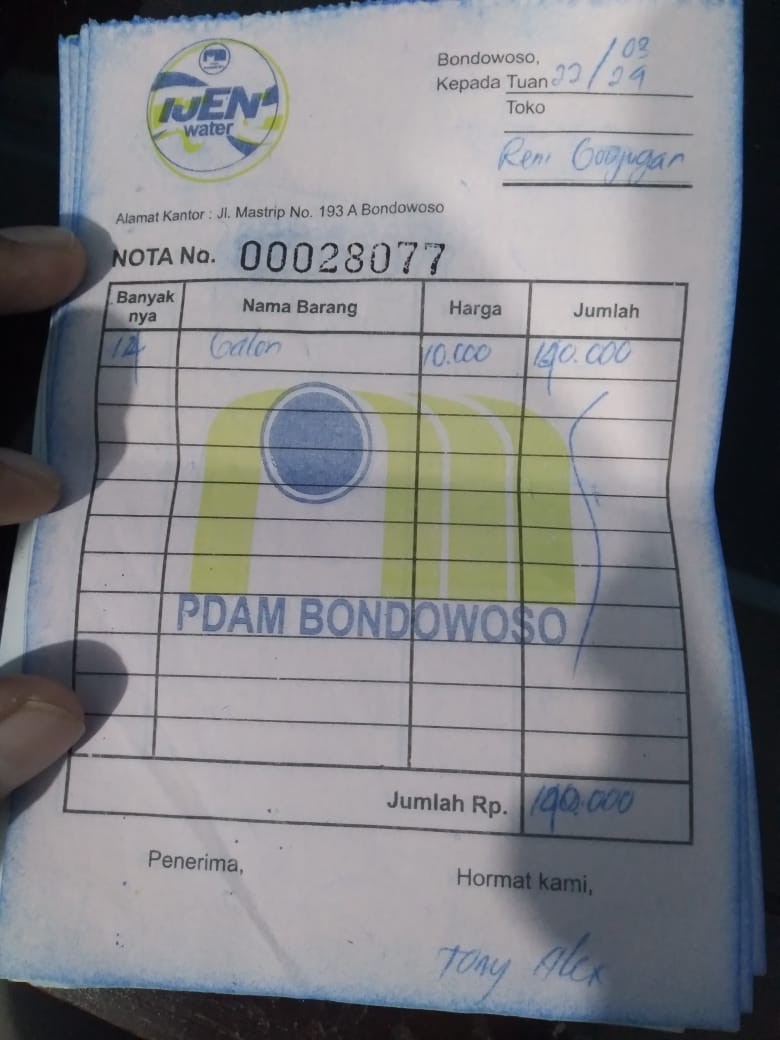 IJEN
water
Bondowoso, 22/03
Kepada Tuan 24
Toko
Reni
Alamat Kantor : Jl. Mastrip No. 193 A Bondowoso
NOTA No. 00028077
Banyak nya Nama Barang Harga Jumlah
Galon 10.000
PDAM BONDOWOSO
Jumlah Rp.
Penerima,
Hormat kami,
Tony Alex